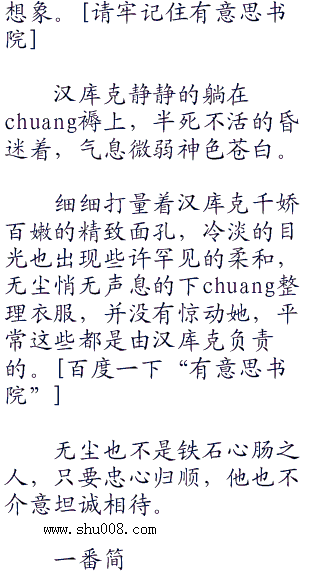 想象。[请牢记住有意思书
院]
汉库克静静的躺在
chuang褥上，半死不活的昏
迷着，气息微弱神色苍白。
细细打量着汉库克千娇
百嫩的精致面孔，冷淡的目
光也出现些许罕见的柔和，
无尘悄无声息的下chuang整
理衣服，并没有惊动她，平
常这些都是由汉库克负责
的。[百度一下“有意思书
院”]
无尘也不是铁石心肠之
人，只要忠心归顺，他也不
介意坦诚相待。
www.shu008.com
一番简